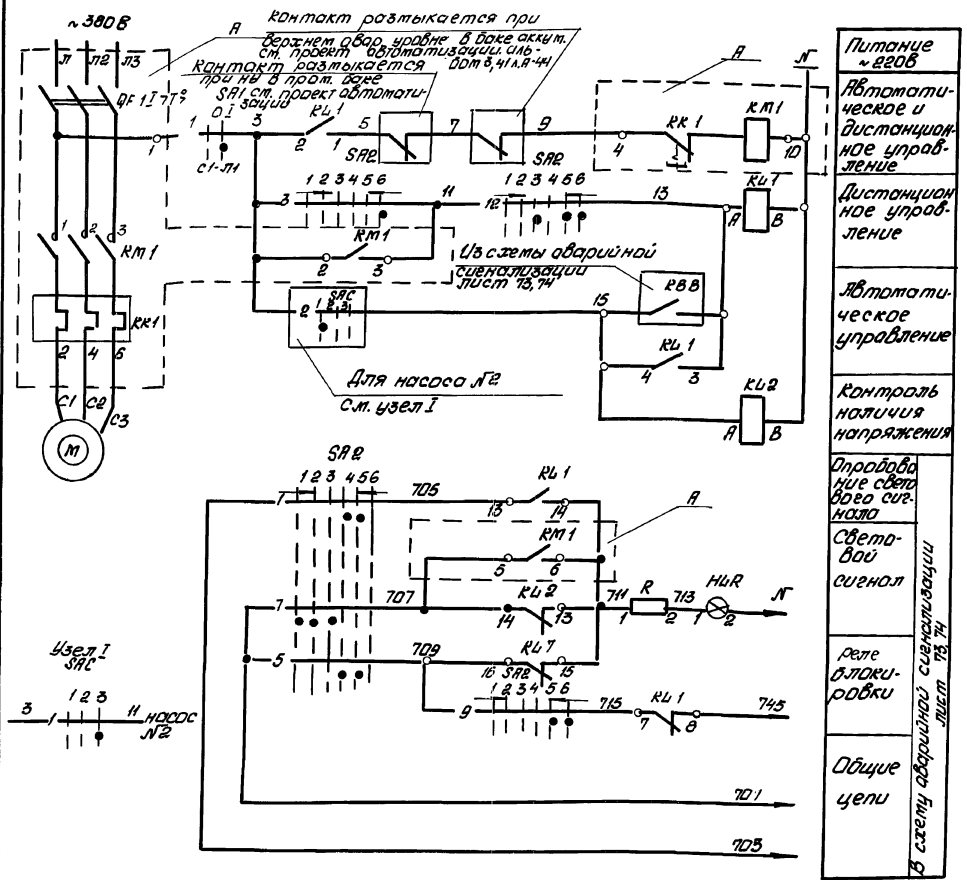 ~380В
А
Контакт размыкается при
верхнем авар. уровне в баке аккум.
см. проект автоматизации. аль-
бом 3,41 л.А-44
Контакт размыкается
при НУ в пром. баке
SA1 см. проект автомати-
зации
Л Л2 Л3
QF1
1 0 I 3 2 KL1 1 5 7 9
1
С1-Л1
SA2
SA2
А
4 KK1 KM1 10
N
1 2 3 4 5 6
3
11
1 2 3 4 5 6
12
13
KL1
А В
KM1
2 3
Из схемы аварийной
сигнализации
лист 73,74
KBB
SAC
1 2 3
2
15
KL1
4 3
KL2
А В
Для насоса №2
См. узел I
1 2 3
KM1
KK1
2 4 6
С1 С2 С3
М
SA2
1 2 3 4 5 6
7 705 13 KL1 14
А
KM1
5 6
7 707 14 KL2 13 711 1 R 2 713 1 HLR 2 N
5 709 16 KL7 15
SA2
1 2 3 4 5 6
9 715 7 KL1 8 745
701
703
Узел I
SAC
1 2 3
3 1 11 насос
№2
Питание
~220В
Автомати-
ческое и
дистанцион-
ное управ-
ление
Дистанцион
ное управ-
ление
Автомати-
ческое
управление
Контроль
наличия
напряжения
Опробова
ние свето
вого сиг-
нала
Свето-
вой
сигнал
реле
блоки-
ровки
Общие
цепи
В схему аварийной сигнализации
лист 73,74